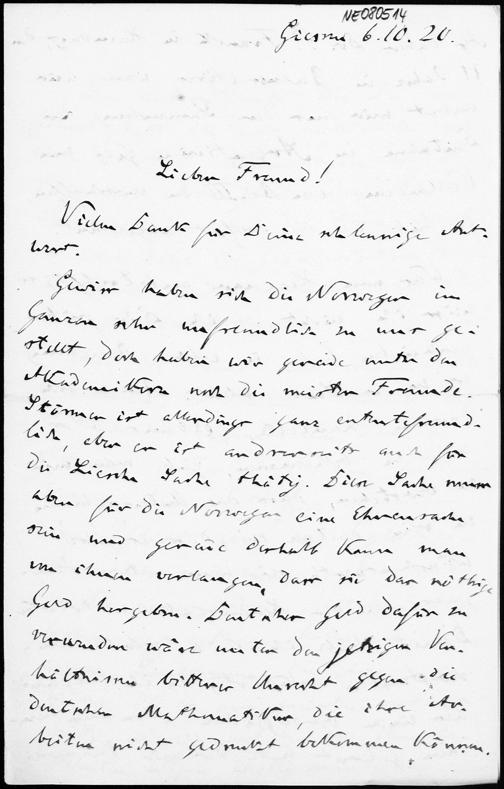 NE080514
Giessen 6.10.20.
Lieber Freund!
Vielen Dank für Deine schleunige Ant-
wort.
Gewiss haben sich die Norweger im
Ganzen sehr unfreundlich zu uns ge-
stellt, doch haben wir gerade unter den
Akademikern noch die meisten Freunde.
Störmer ist allerdings ganz ententefreund-
lich, aber er ist andrerseits auch für
die Liesche Sache thätig. Diese Sache muss
aber für die Norweger eine Ehrensache
sein und gerade deshalb kann man
von ihnen verlangen, dass sie das nöthige
Geld hergeben. Deutsches Geld dafür zu
verwenden wäre unter den jetzigen Ver-
hältnissen bitteres Unrecht gegen die
deutschen Mathematiker, die ihre Ar-
beiten nicht gedruckt bekommen können.